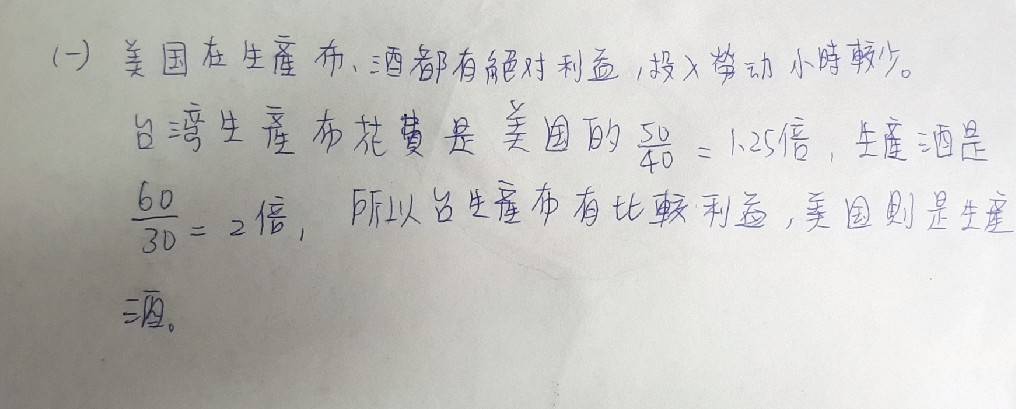 (一) 美国在生產布、酒都有絕对利益,投入勞动小時較少。
台湾生產布花費是美国的 50/40 = 1.25倍,生產酒是
60/30 = 2倍,所以台生產布有比較利益,美国則是生產
酒。